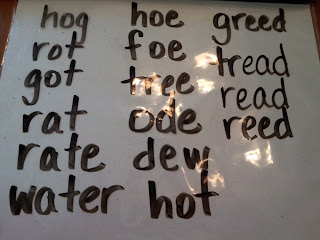 hog hoe greed
rot foe tread
got tree read
rat ode reed
rate dew
water hot